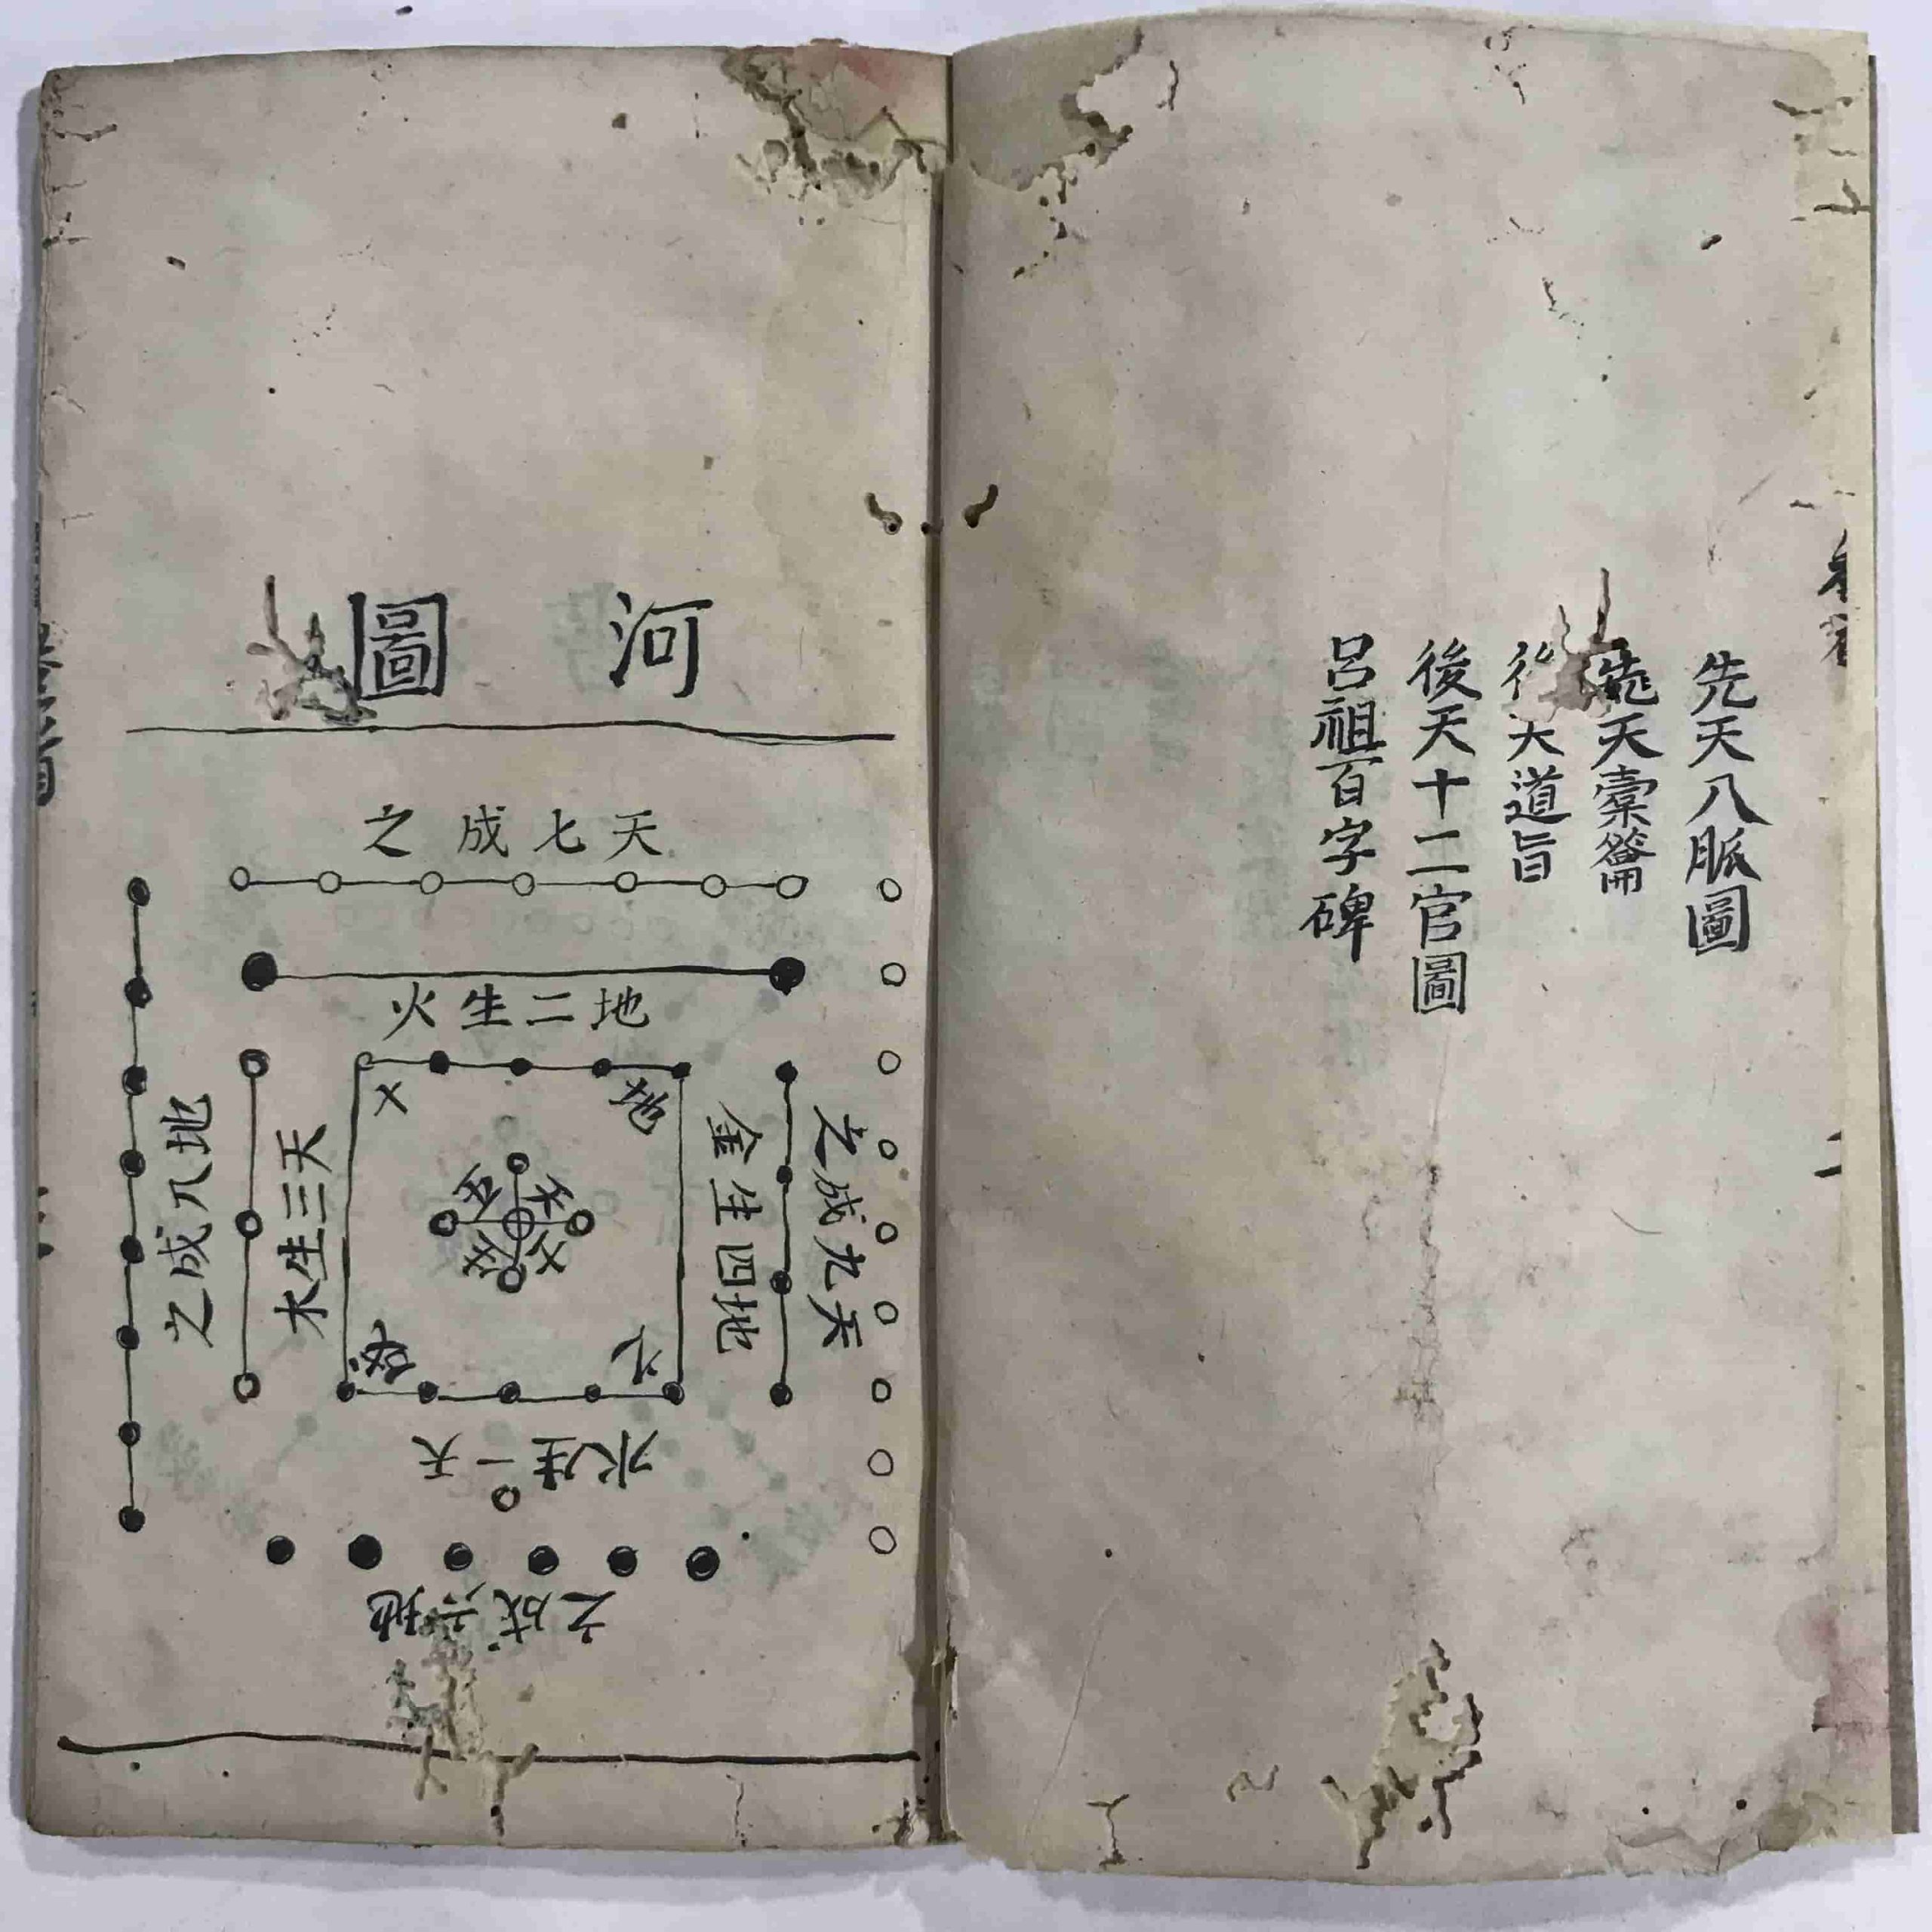 先天八脈圖
先天橐籥
後天道旨
後天十二官圖
呂祖百字碑
二
河圖
天七成之
地二生火
天九成之
地四生金
天三生水
地八成之
天一生水
地六成之
卷首